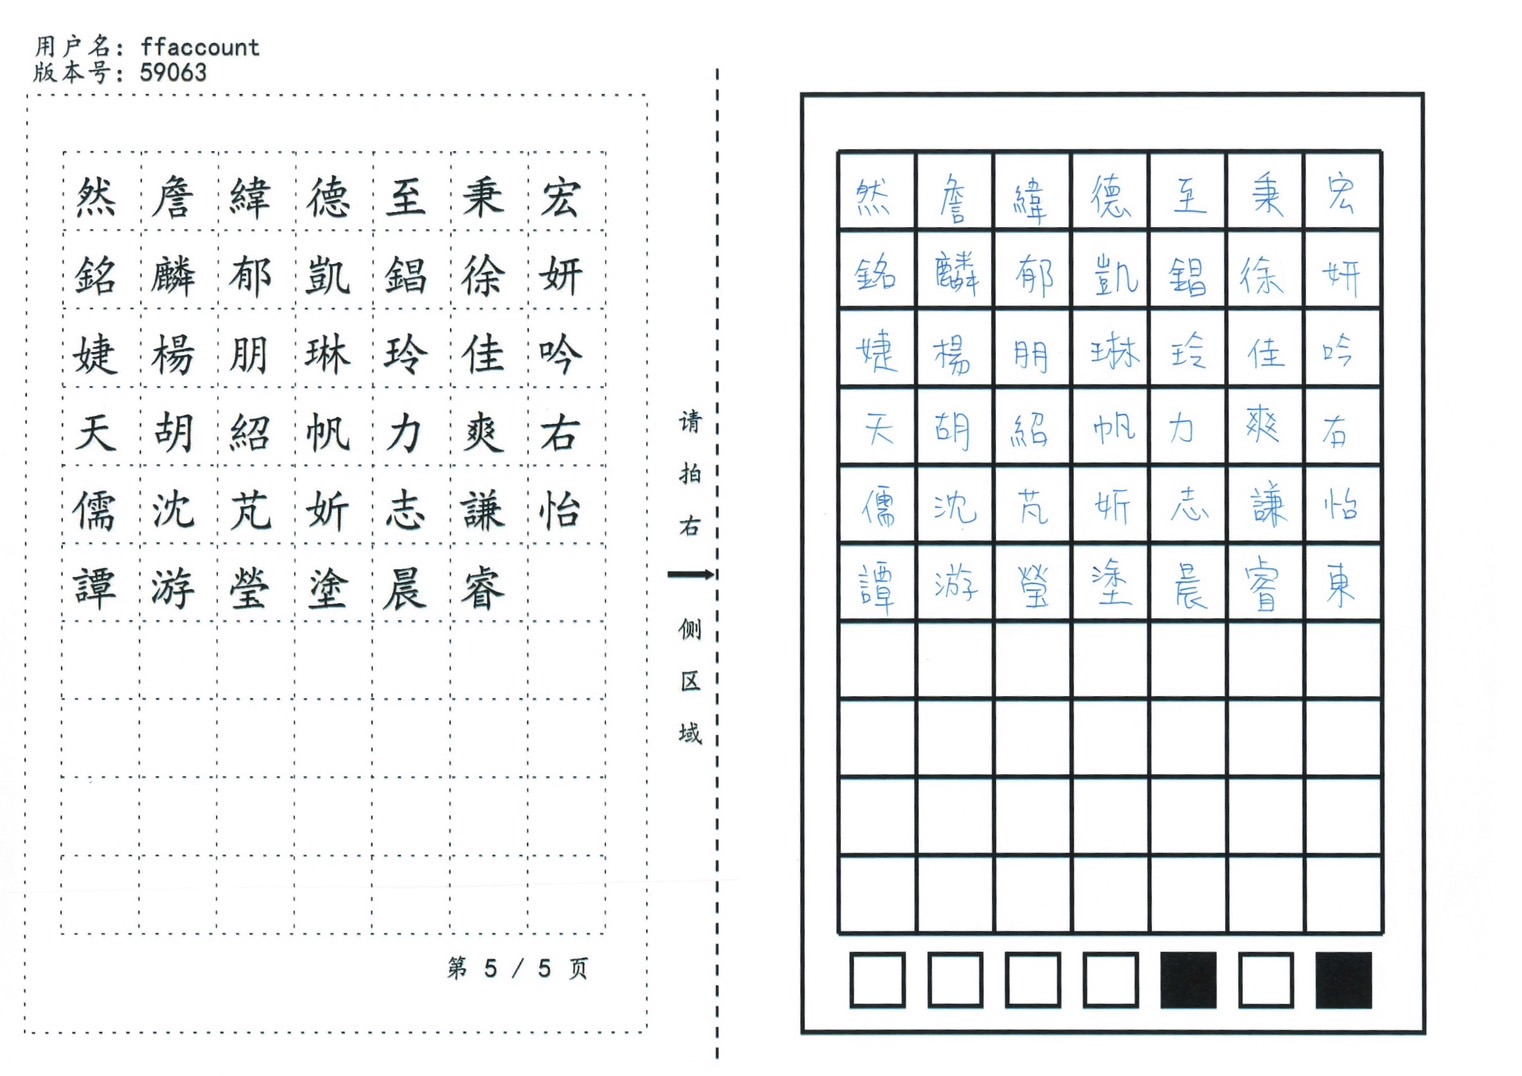 用户名: ffaccount
版本号: 59063
然 詹 緯 德 至 秉 宏
銘 麟 郁 凱 錩 徐 妍
婕 楊 朋 琳 玲 佳 吟
天 胡 紹 帆 力 爽 右
儒 沈 芃 妡 志 謙 怡
譚 游 瑩 塗 晨 睿
第 5 / 5 页
请拍右
侧区域
然 詹 緯 德 至 秉 宏
銘 麟 郁 凱 錩 徐 妍
婕 楊 朋 琳 玲 佳 吟
天 胡 紹 帆 力 爽 右
儒 沈 芃 妡 志 謙 怡
譚 游 瑩 塗 晨 睿 東